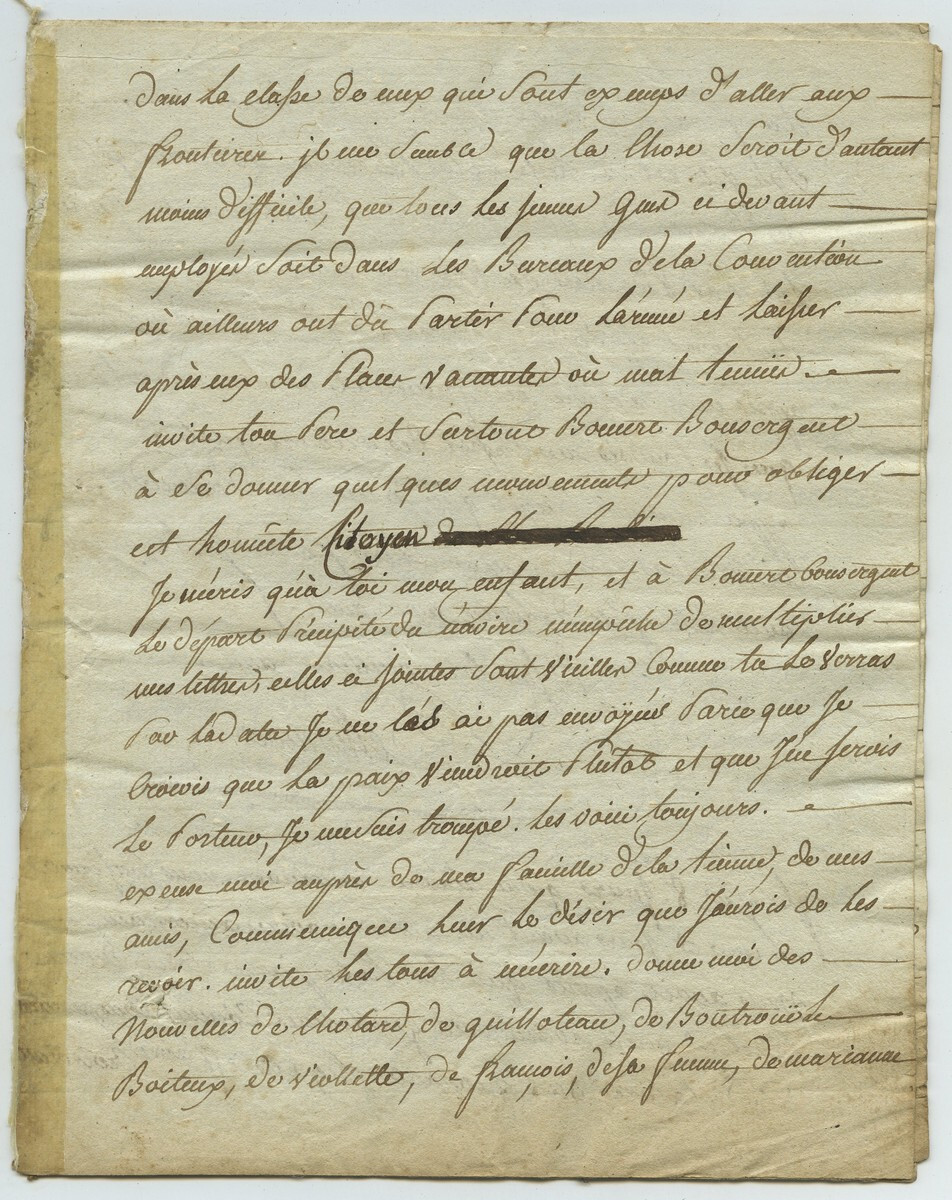 dans la classe de ceux qui sont exemps d'aller aux
frontieres. il me semble que la chose seroit d'autant
moins difficile, que tous les jeunes gens ci devant
employés soit dans les Bureaux de la Convention
où ailleurs ont dû Partir Pour L'armé et Laisser
après eux des Places vacantes où mal tenues.
invite ton Pere et surtout Bonsergent
à se donner quelques mouvements pour obliger
cet honnête Citoyen
Je n'écris qu'à toi mon enfant, et à Bonsergent
Le départ Précipité du navire m'empêche de multiplier
mes lettres, celles ci jointes sont vieilles comme tu le verras
Par La date Je ne les ai pas envoÿées Parce que Je
Croiois que La paix viendroit Plûtot et que J'en serois
Le Porteur, Je me suis trompé. les voici toujours.
excuse moi auprès de ma famille de la tienne, de mes
amis, Communique leur le désir que J'aurois de les
revoir. invite les tous à m'écrire. donne moi des
Nouvelles de Chotard, de guilloteau, de Boutrouüe Le
Boiteux, de violette, de françois, de sa femme, de marianne